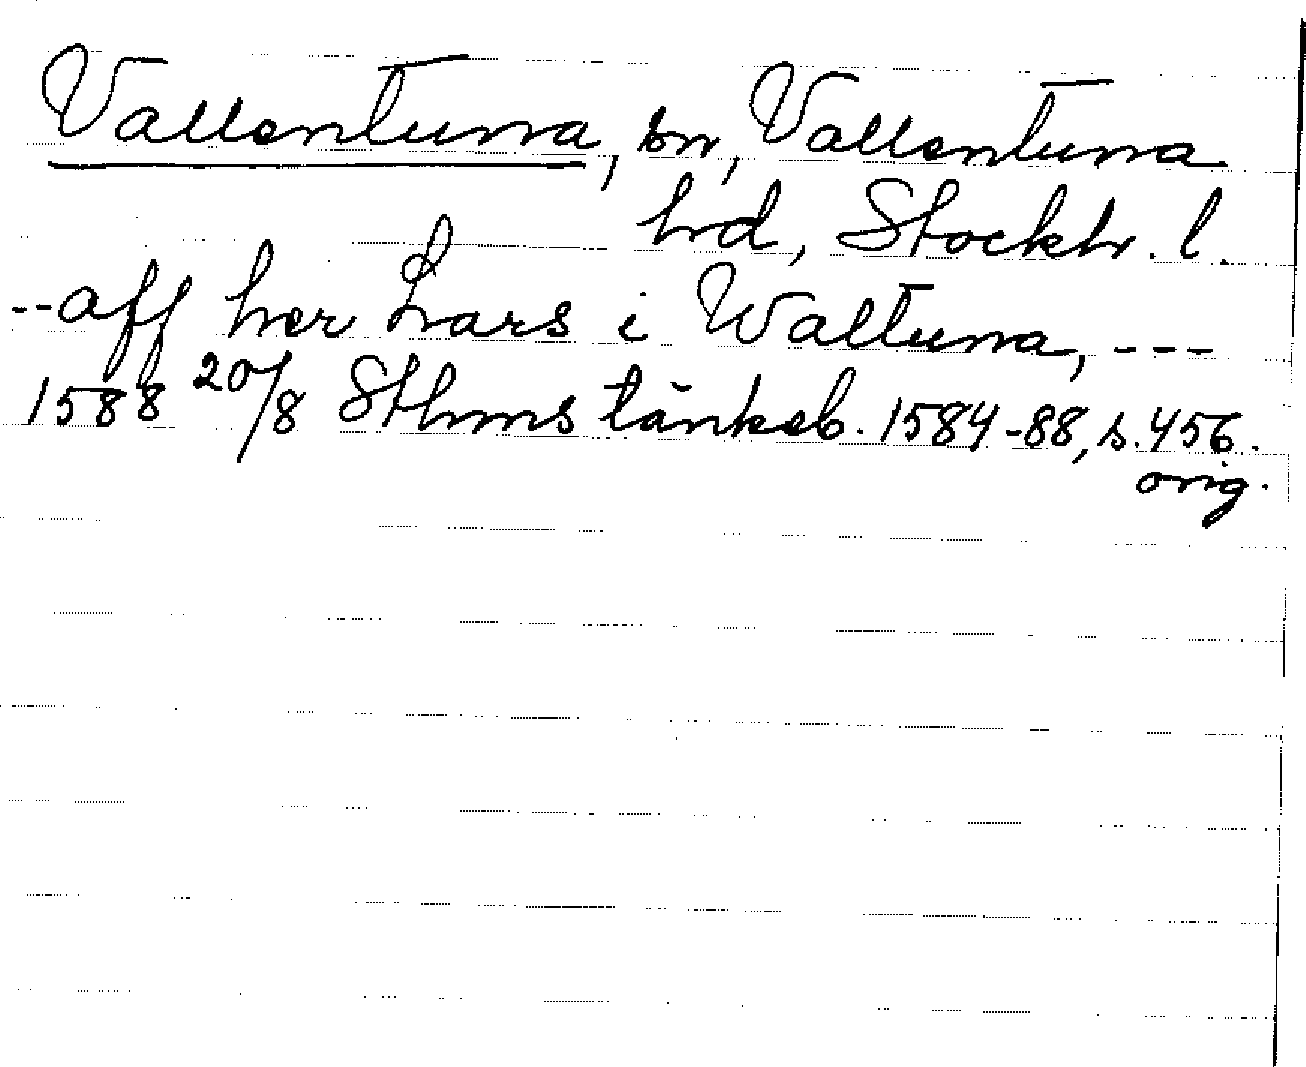 Vallentuna, sn, Vallentuna
hrd, Stockh. l.
--aff her Lars i Waltuna, ---
1588 20/8 Sthms tänkeb. 1584-88, s. 456.
orig.